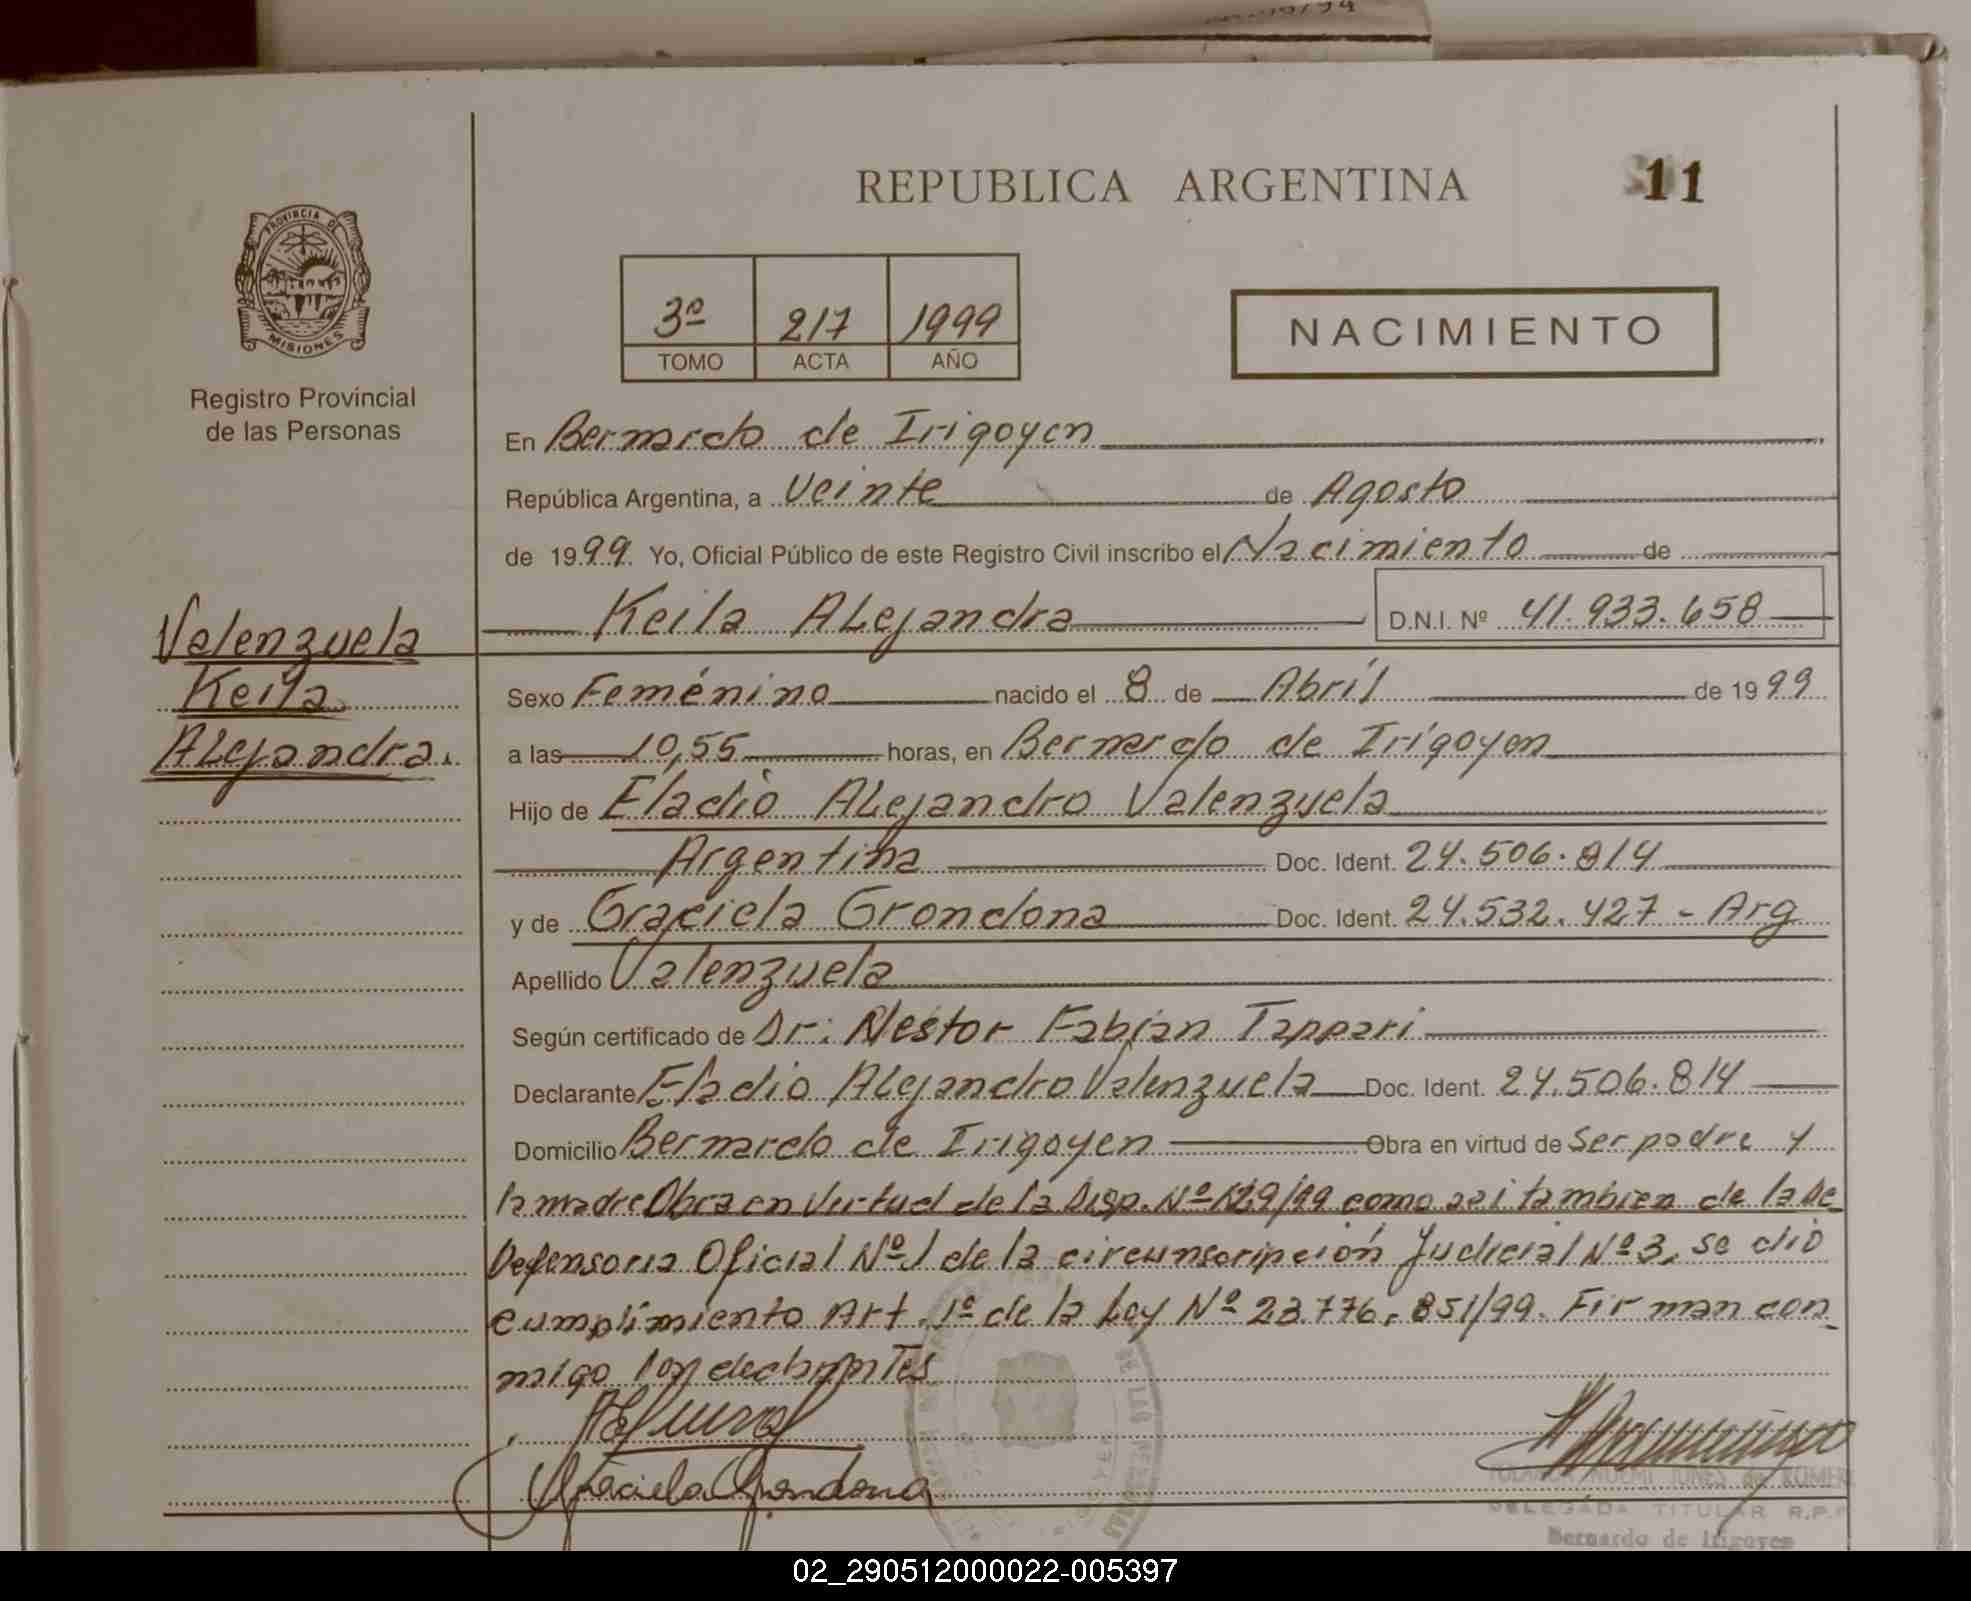 REPUBLICA ARGENTINA
11
PROVINCIA DE
MISIONES
Registro Provincial
de las Personas
3º 217 1999
TOMO ACTA AÑO
NACIMIENTO
En Bernardo de Irigoyen
República Argentina, a Veinte de Agosto
de 1999. Yo, Oficial Público de este Registro Civil inscribo el Nacimiento de
Keila ALejandra D.N.I. Nº 41.933.658
Valenzuela
Keila
ALejandra.
Sexo Feménino nacido el 8 de Abríl de 1999
a las 10,55 horas, en Bernardo de Irigoyen
Hijo de Eladio ALejandro Valenzuela
Argentina Doc. Ident. 24.506.814
y de Graciela Grondona Doc. Ident. 24.532.427 - Arg
Apellido Valenzuela
Según certificado de Dr: Nestor Fabian Tappari
Declarante Eladio ALejandro Valenzuela Doc. Ident. 24.506.814
Domicilio Bernardo de Irigoyen Obra en virtud de Ser padre y
la madre Obra en Virtud de la Disp. Nº 129/99 como asi tambien de la De_
Defensoria Oficial Nº 1 de la circunscripción Judicial Nº 3, se dió
cumplimiento Art. 1º de la Ley Nº 23.776. 851/99. Firman con_
migo los declarantes
Graciela Grondona
NOEMI de ROMER
DELEGADA TITULAR R.P.P
Bernardo de Irigoyen
02_290512000022-005397